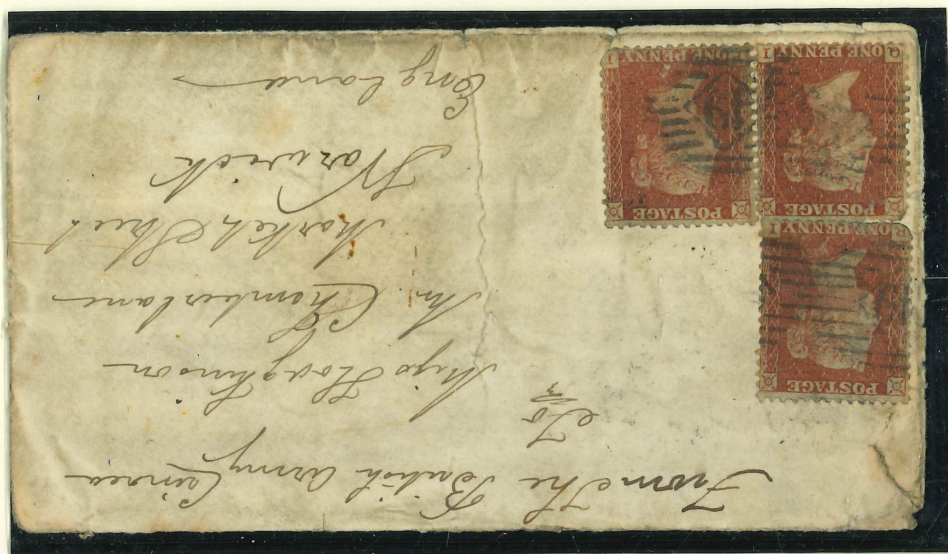 From the British Army Crimea
To
Miss Hodgkinson
Mr Chamberlane
Market Street
Warwick
England
POSTAGE
Q ONE PENNY I
POSTAGE
Q ONE PENNY I
POSTAGE
ONE PENNY I